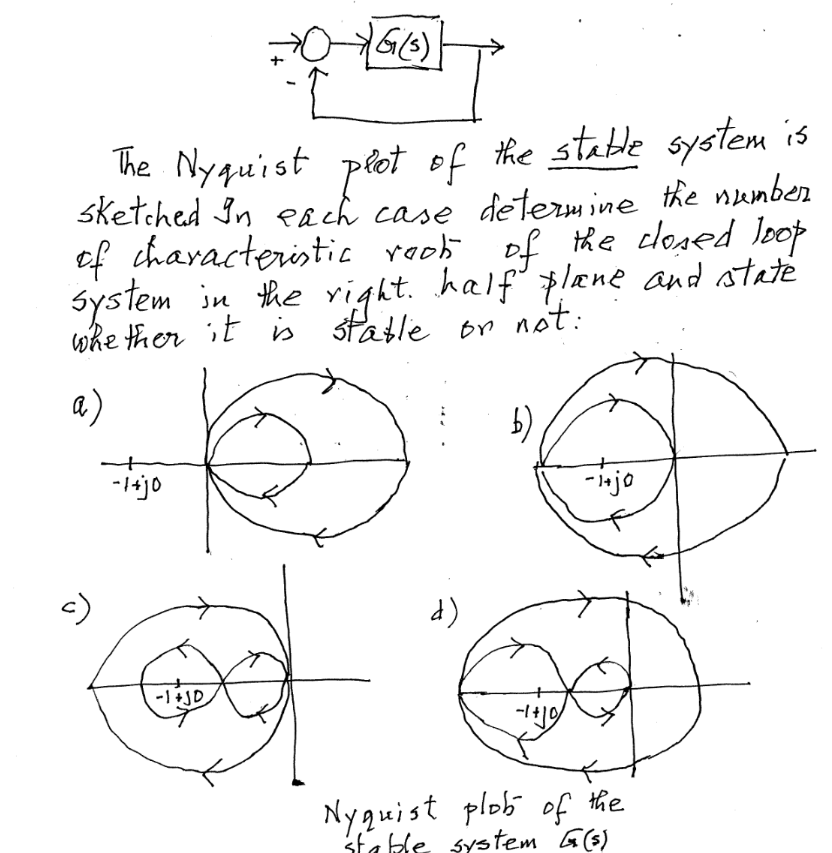 G(s)
+
-
The Nyquist plot of the stable system is
sketched In each case determine the number
of characteristic roots of the closed loop
system in the right. half plane and state
whether it is stable or not:
a)
-1+j0
b)
-1+j0
c)
-1+j0
d)
-1+j0
Nyquist plots of the
stable system G(s)